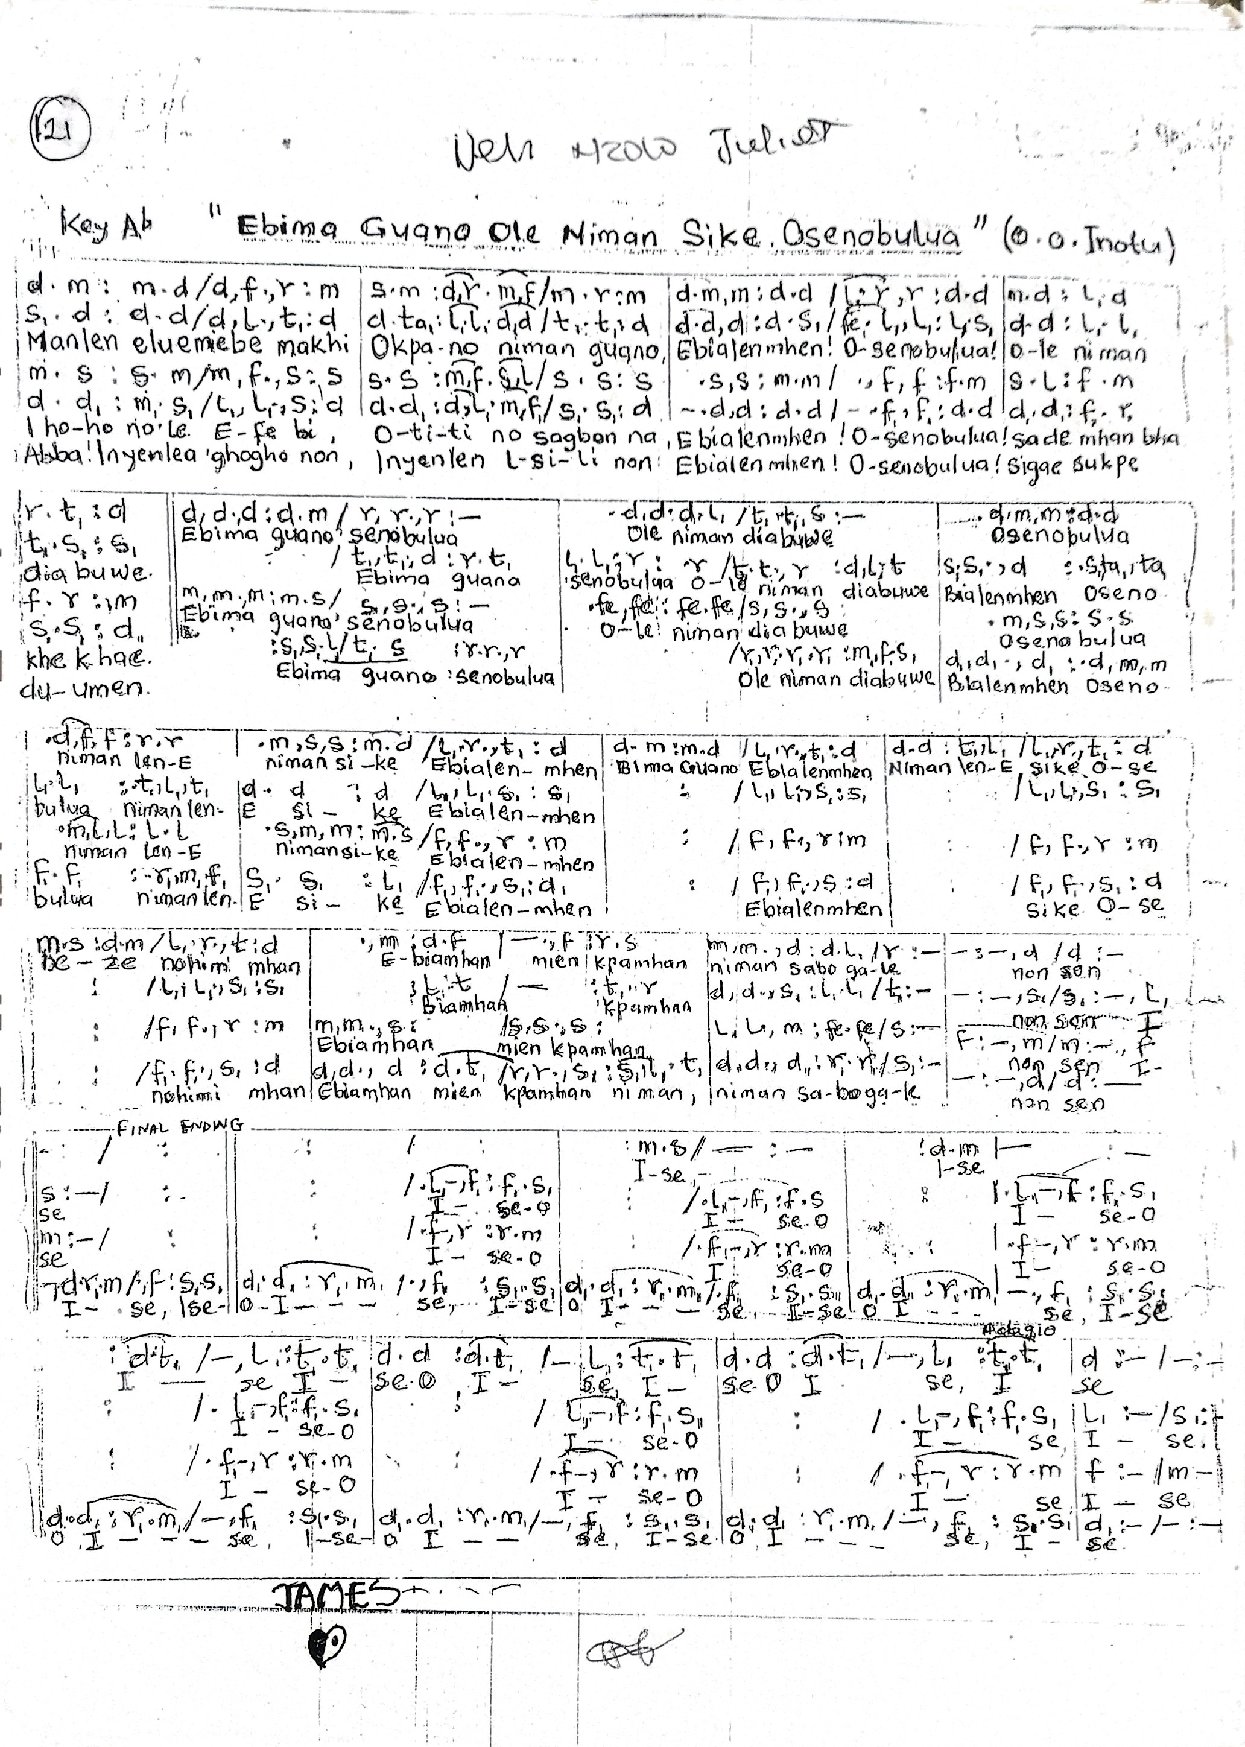 121
Juliet
Key Ab "Ebima Guano Ole Niman Sike. Osenobulua" (O.O. Inotu)
d.m: m.d/d,f.,r:m | s.m:d,r.m,f/m.r:m | d.m,m:d.d/l,:r,r:d.d | m.d:l,d
s,.d: d.d/d,l.,t,:d | d.ta,:l,l,d,d/t,.t,:d | d.d,d:d.s,/fe,.l,l,:l,s, | d.d:l,.l,
Manlen eluemebe makhi | Okpa-no niman guano, | Ebialenmhen! O-senobulua! | O-le niman
m.s:s.m/m,f.,s:s | s.s:m,f.s,l/s.s:s | .s,s:m.m/.,f,f:f.m | s.l:f.m
d.d,:m,s,/l,l,.,s:d | d.d,:d,l,m,f/s,.s,:d | -.d,d:d.d/-.f,f,:d.d | d,d,:f,.r,
Iho-ho no-le. E-fe bi, O-ti-ti no sagbon na, Ebialenmhen! O-senobulua! sade mhan bha
Abba! Inyenlea 'ghogho non, Inyenlen I-si-li non: Ebialenmhen! O-senobulua! Sigae Sukpe
r.t,:d | d,d.,d:d.m/r,r.,r:- | .d,d:d.l,/t,.t,,s:- | .d.m,m:d.d
Ebima guano senobulua | Ole niman diabuwe | Osenobulua
t,.s,:s, | /t,t,.,d:r.t, | l,.l,:r/t,t.,r:d,l,t | s,s,.,d:.s,ta,,ta
diabuwe. | Ebima guana | senobulua O-le niman diabuwe | Bialenmhen Oseno.
f.r:m | m,m.,m:m.s/s,s.,s:- | .fe,fe:fe.fe/s,s.,s | .m,s,s:s.s
s,.s,:d, | Ebima guano senobulua | O-le niman diabuwe | Osenobulua
:s,s,l/t,s:r.r.,r | /r,r,r,r,:m,f,s, | d,d,.,d,:.d,m,m
khe khae. | Ebima guano senobulua | Ole niman diabuwe | Bialenmhen Oseno-
du-umen.
.d,f,f:r.r | .m,s,s:m.d/l,r.,t,:d | d.m:m.d/l,r.,t,:d | d.d:t,l,/l,r.,t,:d
niman len-E | niman si-ke Ebialen-mhen | Bima Guano Ebialenmhen | Niman len-E, sike O-se
l,.l,:.t,l,t, | d.d:d/l,l,.s,:s, | :/l,l,.,s,:s, | :/l,l,.s,:s,
bulua niman len- | E si-ke Ebialen-mhen
.m,l,l:l.l | .s,m,m:m.s/f,f.,r:m | :/f,f.,r:m | :/f,f.,r:m
niman len-E | niman si-ke Ebialen-mhen
f.f,:.r,m,f, | s,.s,:l,/f,f.,s,:d, | :/f,f.,s:d | :/f,f.,s,:d
bulua niman len. | E si-ke Ebialen-mhen | Ebialenmhen | Sike O-se
m.s:d.m/l,r.,t,:d | .,m:d.f|-.,f:r.s | m,m.,d:d.l,/r:- | -:-,d/d:-
be-ze nohimi mhan | E-biamhan mien kpamhan | niman sabo ga-le | non sen
:/l,l,.,s,:s, | :l,t/-:t,.r | d,d.,s,:l,l,/t,:- | -:-,s,/s,:-,l,
Biamhan kpamhan | non sen I
:/f,f.,r:m | m,m.,s:/s,s.,s: | l,l.,m:fe.fe/s:- | f:-,m/m:-.,f
Ebiamhan mien kpamhan | non sen I-
:/f,.f.,s,:d | d,d.,d:d.t,/r,r.,s,:s,l,.t, | d,d.,d,:r,.r,/s,:- | -:-,d/d:-
nohimi mhan | Ebiamhan mien kpamhan niman, | niman sa-boga-le | non sen
FINAL ENDING
-:/: | :/: | :m.s/-:- | :d.m|-:-
I-se, | I-se
s:-/:- | :/.l,-,f,:f,.s, | :/.l,-,f,:f.s | :|.l,-,f:f,.s,
se | I- se-O | I- se-O | I- se-O
m:-/: | /.f-,r:r.m | /.f-,r:r.m | :|.f-,r:r.m
se | I- se-O | I- se-O | I- se-O
-,d r,m/,f:s,s, | d.d,:r,.m,/.,f,:s,.s, | d,.d,:r,.m,/.f,:s,.s, | d,.d,:r,.m,|-,f,:s,.s,
I- se, Ise- | O-I--- se, I-se | O I--- se, I-se | O I--- se, I-se
Adagio
:d.t,/-,l,:t,.t, | d.d:d.t,/-,l,:t,.t, | d.d:d.t,/-,l,:t,.t, | d:-/-:-
I- se I- | se-O, I- se, I- | se-O I se, I | se
:/.l,-,f,:f,.s, | :/l,-,f:f,s, | :/.l,-,f,:f,.s, | l,:-/s,:-
I- se-O | I- se-O | I- se, | I- se.
:/.f-,r:r.m | :/.f-,r:r.m | :/.f-,r:r.m | f:-/m-
I- se-O | I- se-O | I- se | I- se
d.d,:r,.m,/-,f,:s,.s, | d,.d,:r,.m,/-,f,:s,.s, | d,.d,:r,.m,/-,f,:s,.s, | d,:-/-:-
O I--- se, I-se- | O I--- se, I-se | O I--- se, I- | se.
JAMES